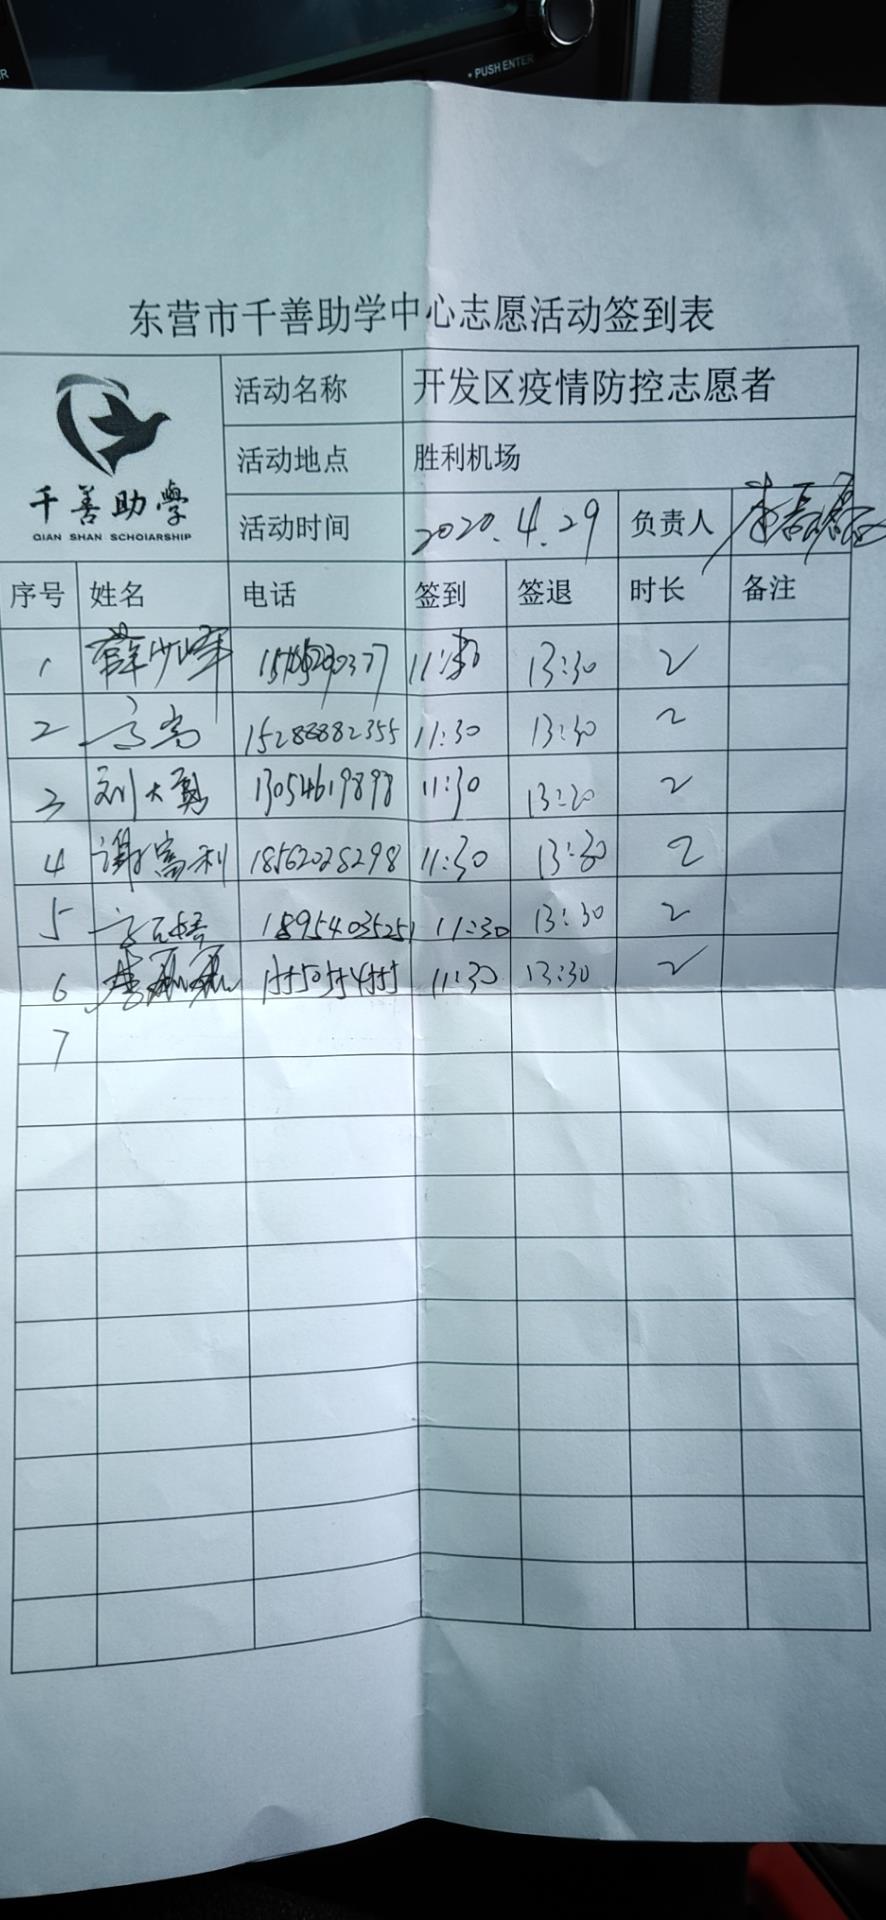 PUSH ENTER
东营市千善助学中心志愿活动签到表
千善助學
QIAN SHAN SCHOIARSHIP
活动名称 开发区疫情防控志愿者
活动地点 胜利机场
活动时间 2020.4.29 负责人
序号 姓名 电话 签到 签退 时长 备注
1 薛少峰 13:30 2
2 高尚 15288882355 11:30 13:30 2
3 刘大勇 13054619898 11:30 13:30 2
4 谢富利 18562028298 11:30 13:30 2
5 18954035251 11:30 13:30 2
6 李磊磊 15550554555 11:30 13:30 2
7